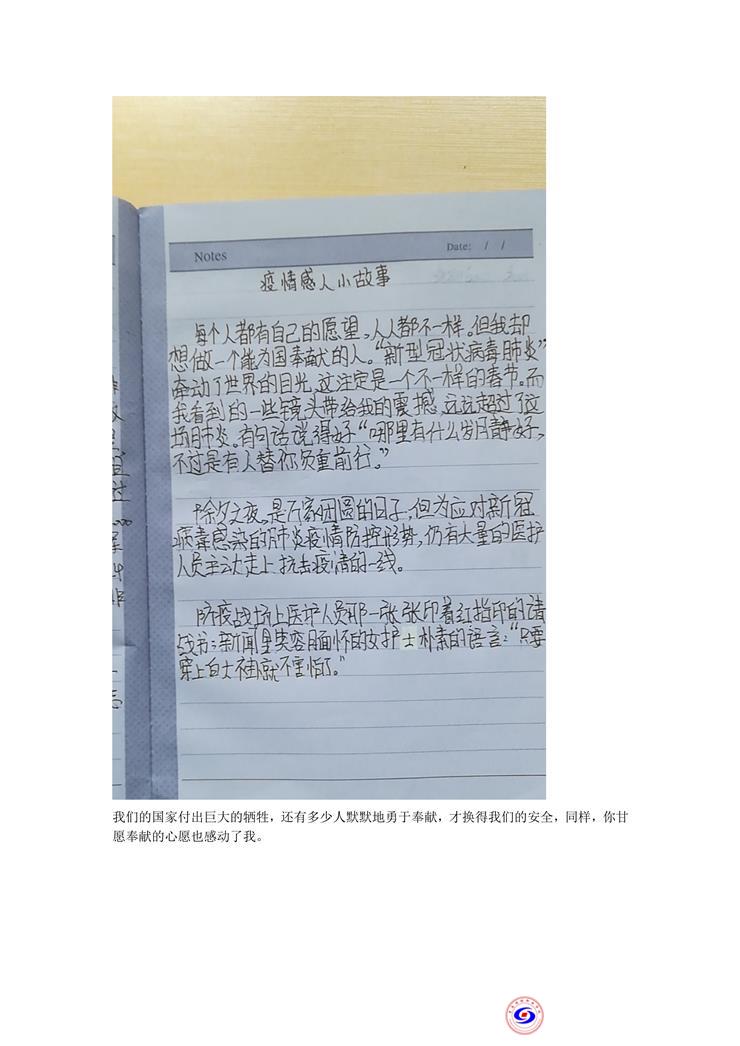 Notes
Date: / /
疫情感人小故事
每个人都有自己的愿望,人人都不一样。但我却
想做一个能为国奉献的人。“新型冠状病毒肺炎”
牵动了世界的目光,这注定是一个不一样的春节。而
我看到的一些镜头带给我的震撼,远远超过了这
场肺炎。有句话说得好“哪里有什么岁月静好,
不过是有人替你负重前行。”
除夕之夜,是万家团圆的日子,但为应对新冠
病毒感染的肺炎疫情防控形势,仍有大量的医护
人员主动走上抗击疫情的一线。
防疫战场上医护人员那一张张印着红指印的请
战书;新闻里笑容满面怀的女护士朴素的语言:“只要
穿上白大褂就不害怕了。”
我们的国家付出巨大的牺牲,还有多少人默默地勇于奉献,才换得我们的安全,同样,你甘
愿奉献的心愿也感动了我。